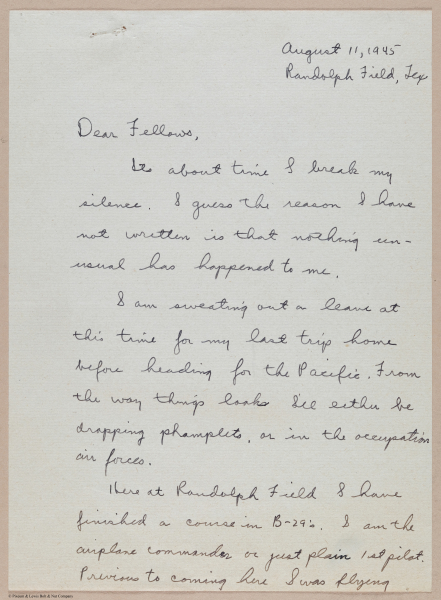 August 11, 1945
Randolph Field, Tex
Dear Fellows,
Its about time I break my
silence. I guess the reason I have
not written is that nothing un-
usual has happened to me.
I am sweating out a leave at
this time for my last trip home
before heading for the Pacific. From
the way things looks I'll either be
dropping phamplets, or in the occupation
air forces.
Here at Randolph Field I have
finished a course in B-29's. I am the
airplane commander or just plain 1st pilot.
Previous to coming here I was flying
© Pioneer & Lewis Bolt & Nut Company